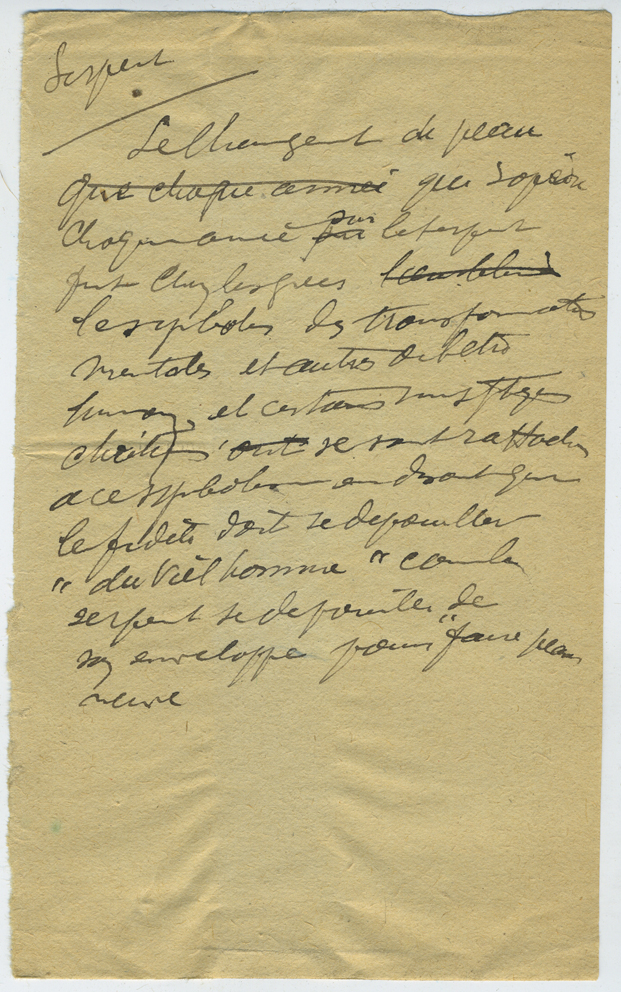 Serpent
Le changement de peau
que chaque année que s'opère
chaque année par sur le serpent
fut chez les grecs
le symbole des transformations
mentales et autres de l'etre
humain, et certains mystiques
chrétiens s'ont se sont rattachés
a ce symbole en disant que
le fidèle doit se depouiller
" du vieil homme " comme le
serpent se depouille de
son enveloppe pour "faire peau
neuve